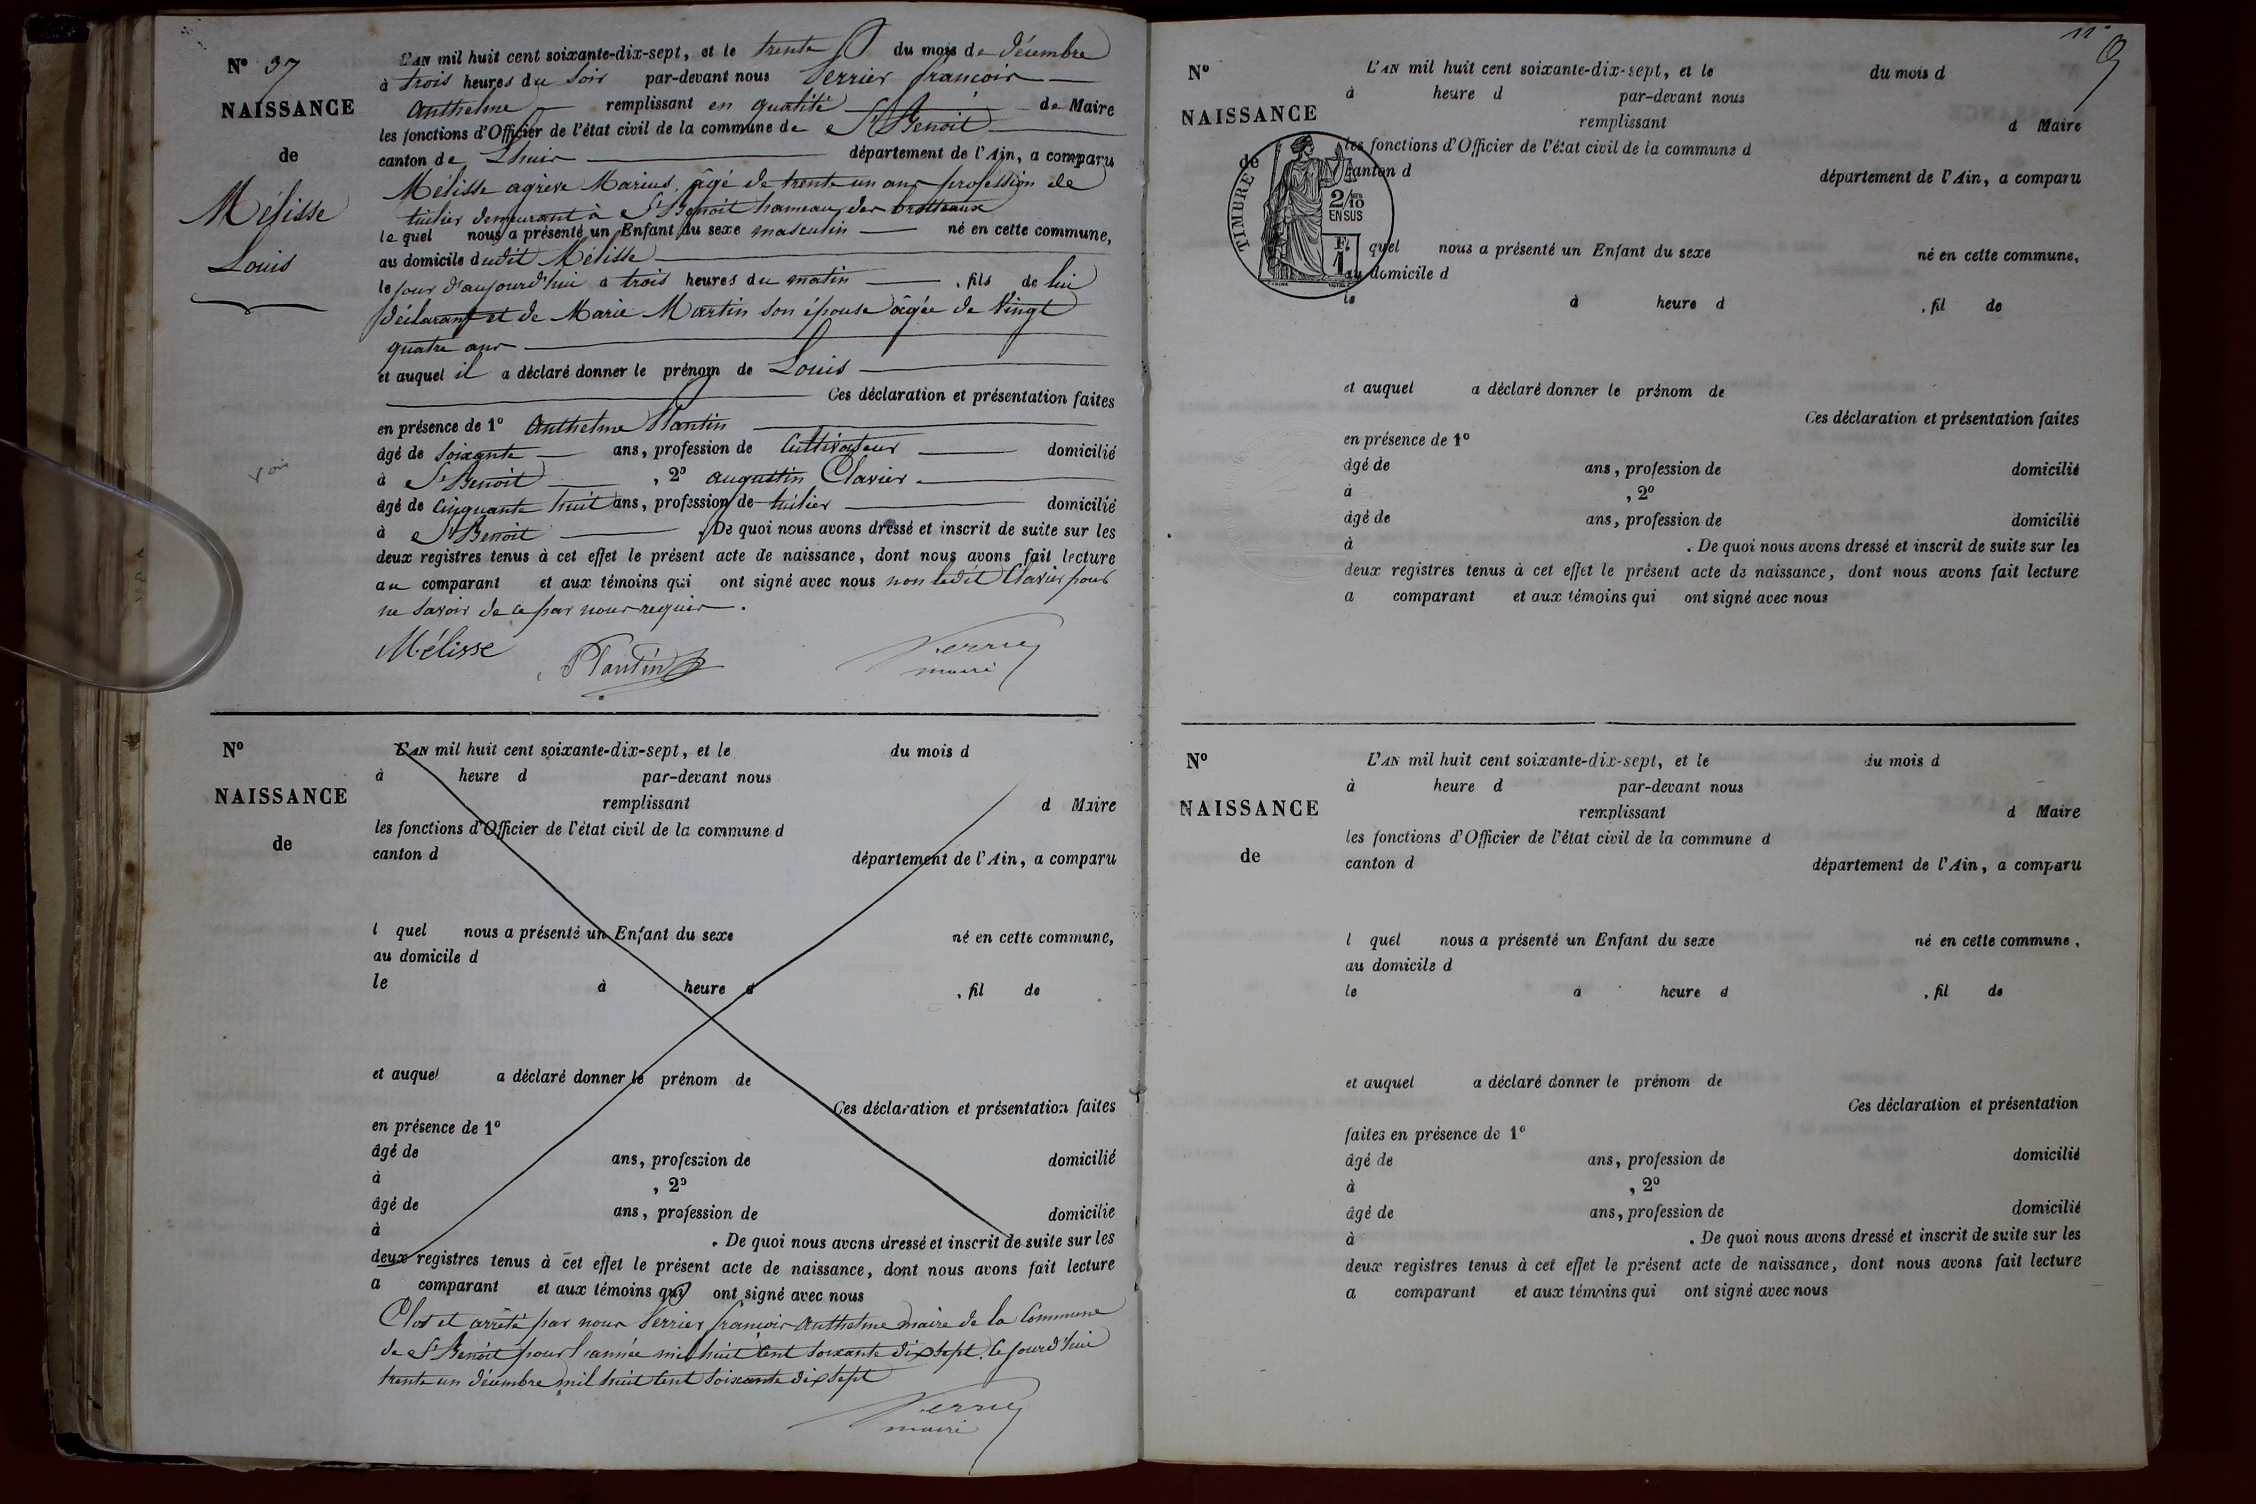 N° 37
NAISSANCE
de
Mélisse
Louis
L'AN mil huit cent soixante-dix-sept, et le trente du mois de décembre
à trois heures du soir par-devant nous Perrier françois
Anthelme remplissant en qualité de Maire
les fonctions d'Officier de l'état civil de la commune de St Benoit
canton de Lhuis département de l'Ain, a comparu
Mélisse agrève Marius, âgé de trente un ans profession de
tuilier demeurant à St Benoit hameau des brotteaux
le quel nous a présenté un Enfant du sexe masculin né en cette commune,
au domicile dudit Mélisse
le jour d'aujourd'hui à trois heures du matin , fils de lui
déclarant et de Marie Martin son épouse âgée de Vingt
quatre ans
et auquel il a déclaré donner le prénom de Louis
Ces déclaration et présentation faites
en présence de 1° Anthelme Plantin
âgé de soixante ans, profession de Cultivateur domicilié
à St Benoit , 2° augustin Clavier
âgé de Cinquante huit ans, profession de tuilier domicilié
à St Benoit . De quoi nous avons dressé et inscrit de suite sur les
deux registres tenus à cet effet le présent acte de naissance, dont nous avons fait lecture
au comparant et aux témoins qui ont signé avec nous non ledit Clavier pour
ne savoir de ce par nous requis.
Mélisse Plantin Perrier
maire
N°
NAISSANCE
de
L'AN mil huit cent soixante-dix-sept, et le du mois d
à heure d par-devant nous
remplissant d Maire
les fonctions d'Officier de l'état civil de la commune d
canton d département de l'Ain, a comparu
l quel nous a présenté un Enfant du sexe né en cette commune,
au domicile d
le à heure d , fil de
et auquel a déclaré donner le prénom de
Ces déclaration et présentation faites
en présence de 1°
âgé de ans, profession de domicilié
à , 2°
âgé de ans, profession de domicilié
à . De quoi nous avons dressé et inscrit de suite sur les
deux registres tenus à cet effet le présent acte de naissance, dont nous avons fait lecture
a comparant et aux témoins qui ont signé avec nous
Clos et arrêté par nous Perrier françois Anthelme maire de la Commune
de St Benoit pour l'année mil huit cent soixante dix sept. Ce jourd'hui
trente un décembre mil huit cent soixante dix sept
Perrier
maire
9
N°
NAISSANCE
de
TIMBRE
2/10
EN SUS
F.
1
L'AN mil huit cent soixante-dix-sept, et le du mois d
à heure d par-devant nous
remplissant d Maire
les fonctions d'Officier de l'état civil de la commune d
canton d département de l'Ain, a comparu
quel nous a présenté un Enfant du sexe né en cette commune,
au domicile d
le à heure d , fil de
et auquel a déclaré donner le prénom de
Ces déclaration et présentation faites
en présence de 1°
âgé de ans, profession de domicilié
à , 2°
âgé de ans, profession de domicilié
à . De quoi nous avons dressé et inscrit de suite sur les
deux registres tenus à cet effet le présent acte de naissance, dont nous avons fait lecture
a comparant et aux témoins qui ont signé avec nous
N°
NAISSANCE
de
L'AN mil huit cent soixante-dix-sept, et le du mois d
à heure d par-devant nous
remplissant d Maire
les fonctions d'Officier de l'état civil de la commune d
canton d département de l'Ain, a comparu
l quel nous a présenté un Enfant du sexe né en cette commune,
au domicile d
le à heure d , fil de
et auquel a déclaré donner le prénom de
Ces déclaration et présentation
faites en présence de 1°
âgé de ans, profession de domicilié
à , 2°
âgé de ans, profession de domicilié
à . De quoi nous avons dressé et inscrit de suite sur les
deux registres tenus à cet effet le présent acte de naissance, dont nous avons fait lecture
a comparant et aux témoins qui ont signé avec nous